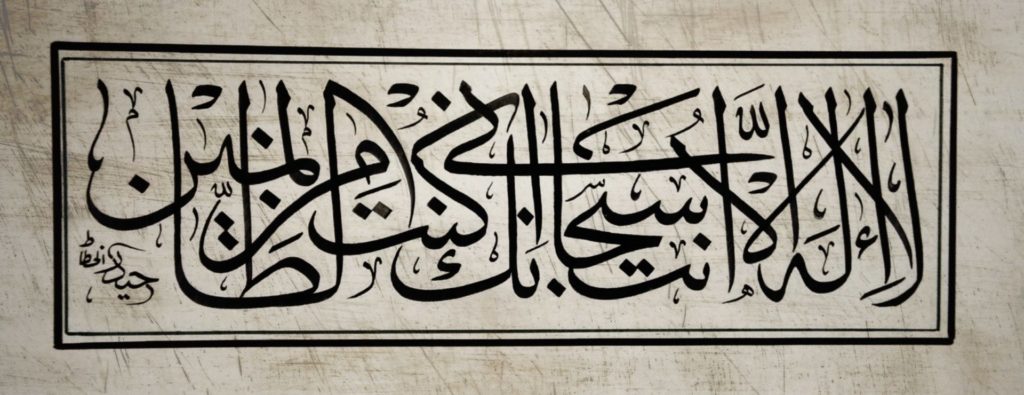 لا إله إلا انت سبحانك اني كنت من الظالمين
حيدر الخطاط